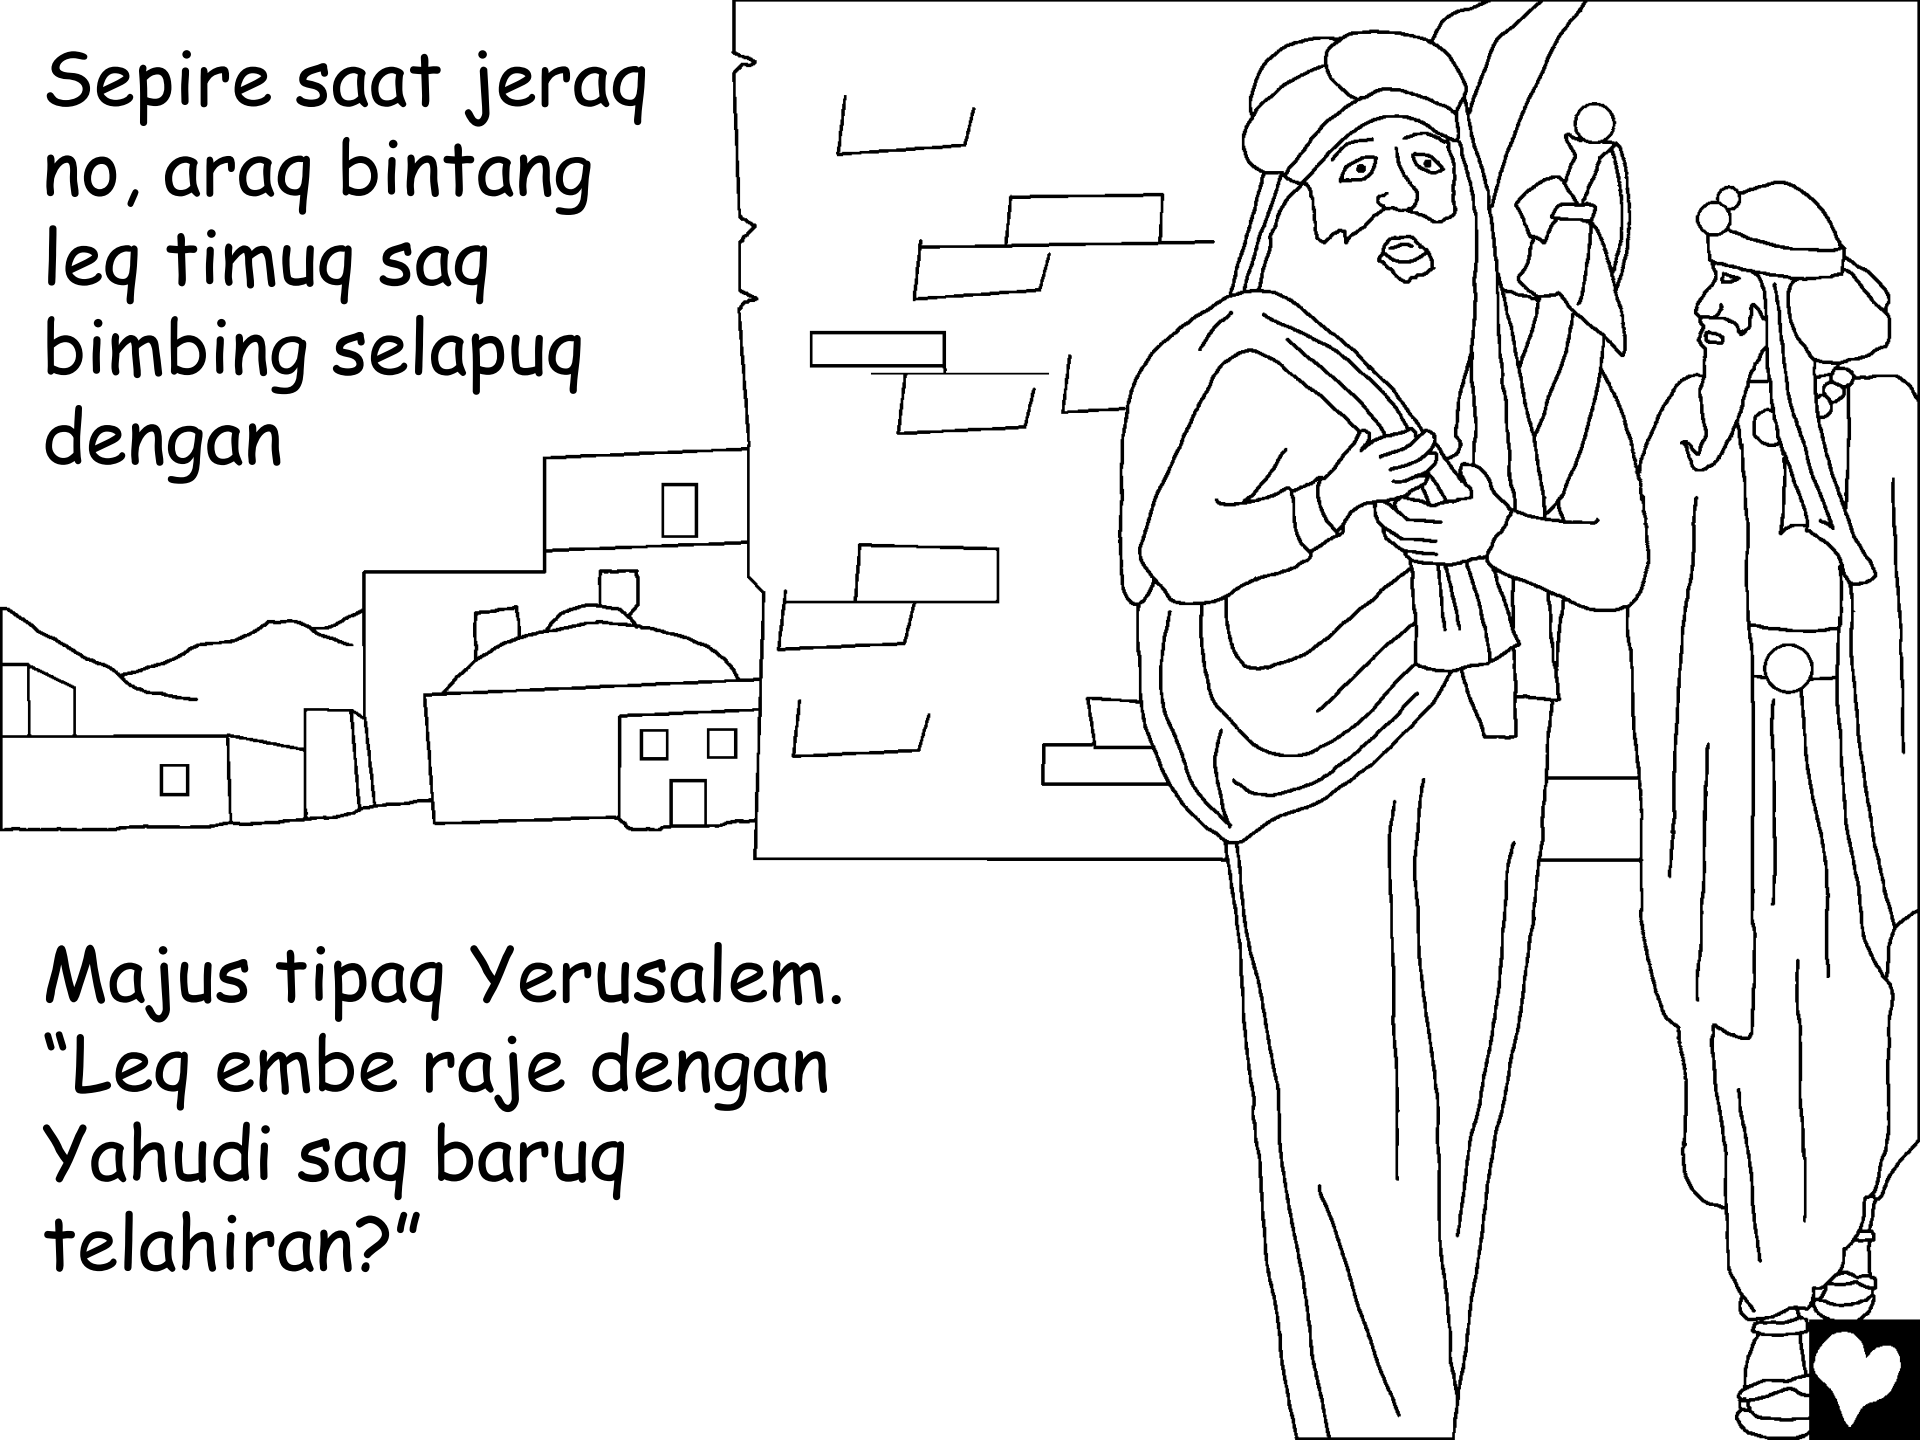 Sepire saat jeraq
no, araq bintang
leq timuq saq
bimbing selapuq
dengan
Majus tipaq Yerusalem.
“Leq embe raje dengan
Yahudi saq baruq
telahiran?”